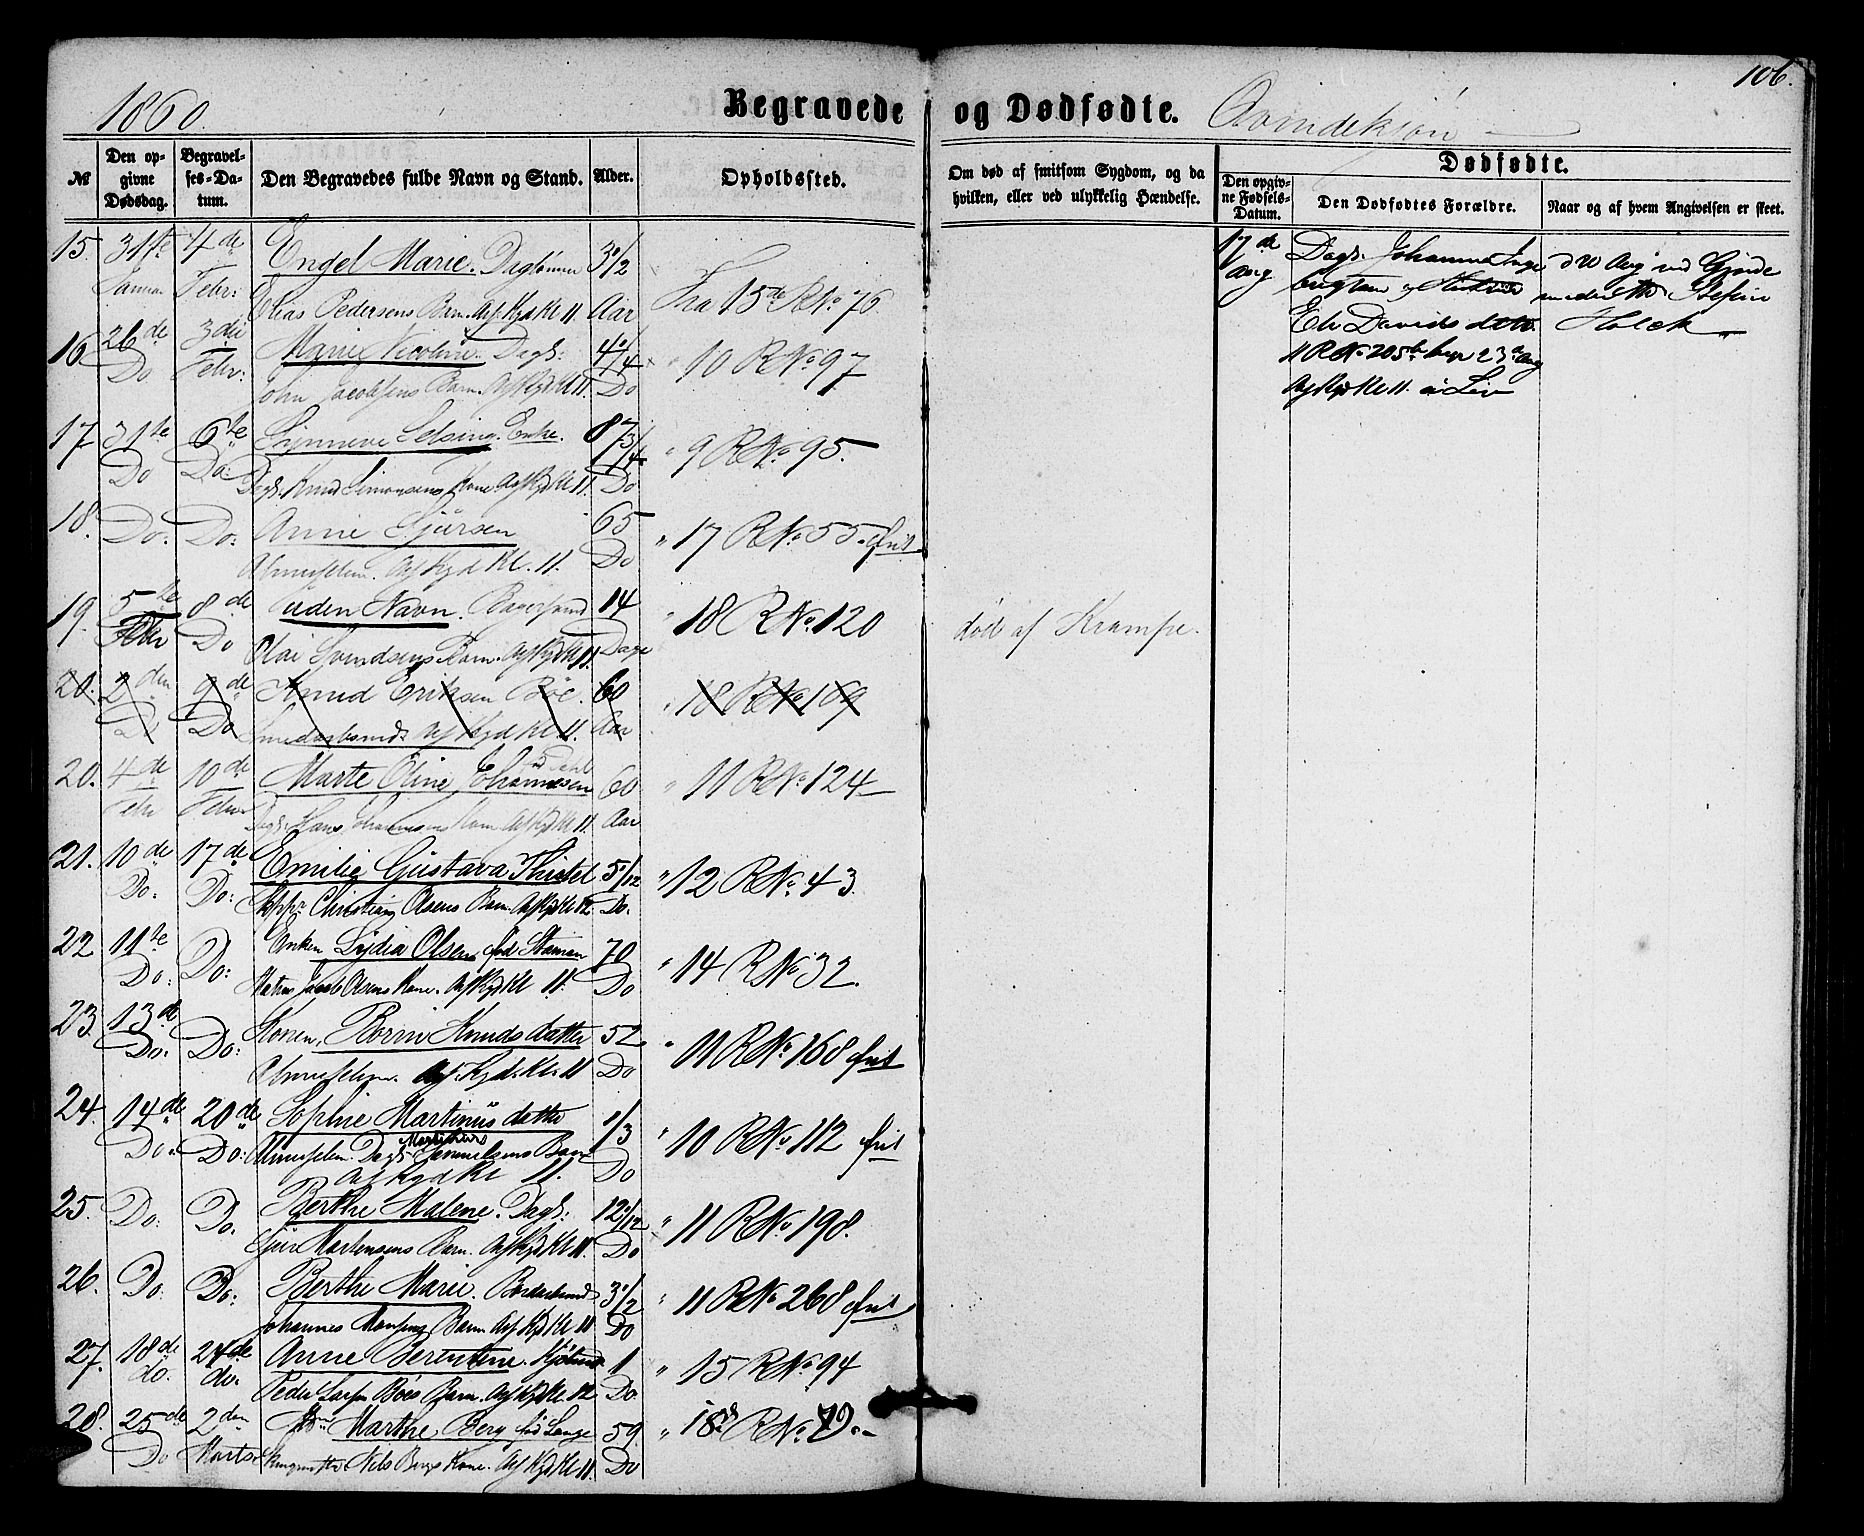 106.
1860.
Begravede og Dødfødte. Qvindekjøn
№
Den opgivne Dødsdag.
Begravelses-Datum.
Den Begravedes fulde Navn og Stand.
Alder.
Opholdssted.
Om død af smitsom Sygdom, og da hvilken, eller ved ulykkelig Hændelse.
Dødfødte.
Den opgivne Fødsels-Datum.
Den Dødfødtes Forældre.
Naar og af hvem Angivelsen er skeet.
15. 31te 4de Engel Marie. Daglønner 3 1/2
Januar Febr: Elias Pedersens Barn. Afskyd Kl 11. Aar Fra 15de R No 76
16 26de 3die Marie Nicoline. Dagl: 4 1/4 " 10 R No 97
Do Febr: John Jacobsens Barn. Afskyd Kl 11. Do
17. 31te 6te Synneve Selsing. Enke. 87 3/4 " 9 R No 95.
Do Do: Dagl. Knud Simonsens Kone. Afskyd Kl 11. Do
18. Do: Do: Anne Sjursen 65 " 17 R No 55. frit
Almisselem. Afskyd Kl. 11. Do
19. 5te 8de Uden Navn. Bagersvend 14 " 18 R No 120 død af Krampe.
Febr Do Olai Svendsens Barn. Afskyd Kl 11. Dage
20. 2den 9de Knud Eriksen Bøe. 60 " 18 R No 169
Do Do Smedarbeids: Afskyd Kl. 11. Aar
20. 4de 10de Marte Oline Johannesen 60 " 11 R No 124
Febr Febru Dagl: Hans Johannesens Kone Afskyd Kl 11. Aar
21. 10de 17de Emilie Gustava Thistel 5 1/12 " 12 R No 43.
Do: Do: Skppr Christian Olsens Barn. Afskyd Kl 12. Do.
22 11te Do: Enken Lydia Olsen, fød 70 " 14 R No 32.
Do: Matros Jacob Olsens Kone. Afskyd Kl 11. Do
23. 13de Do: Konen, Børni Knudsdatter 52 " 11 R No 168 frit
Do: Almisselem. Afskyd. Kl. 11 Do
24. 14de 20de Sophie Martinusdatter 1/3 " 10 R No 112 frit
Do. Do: Almisselem. Dagl. Martinus Samuelsens Barn
Afskyd Kl 11. Do
25. Do: Do: Berthe Malene. Dagl: 12 1/12 " 11 R No 198.
Sjur Mortensens Barn. Afskyd Kl 11. Do
26. Do: Do: Berthe Marie. 3 1/2 " 11 R No 268 frit
Johannes Monsens Barn Afskyd Kl 11 Do
27. 18de 24de Anne Berentine. 1 " 15 R No 94
do. do. Peder Larsen Bøes Barn. Afskyd Kl. 12 Do
28. 25de 2den Marthe Berg fød Lange 59. " 18de R No 79.
Do Marts Nils Bergs Kone. Afskyd Kl 11. Do
17de Aug
Dagl. Johannes Inge
brigtsen og
Eli Davidsdatter
11 R No 205 23de Aug
Afskyd Kl 11.
d 20 Aug ved Gjorde
moder
Holck